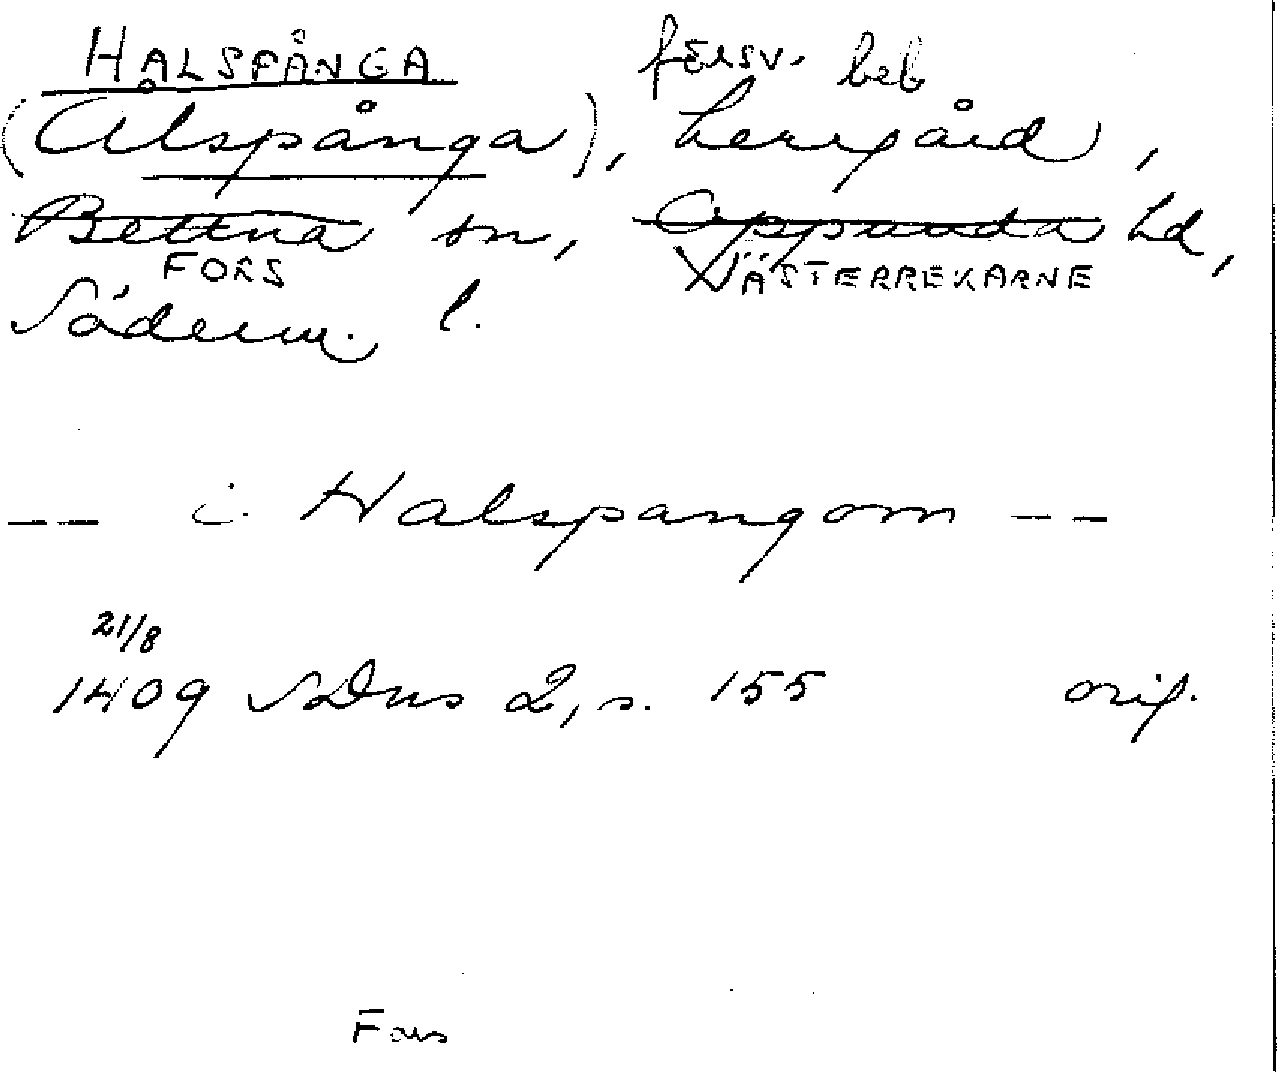 HALSPÅNGA försv. beb
(Ålspånga), herrgård,
Bettna sn, Oppunda hd,
FORS VÄSTERREKARNE
Söderm. l.
-- i Halspangom --
21/8
1409 SDns 2, s. 155 orig.
Fors